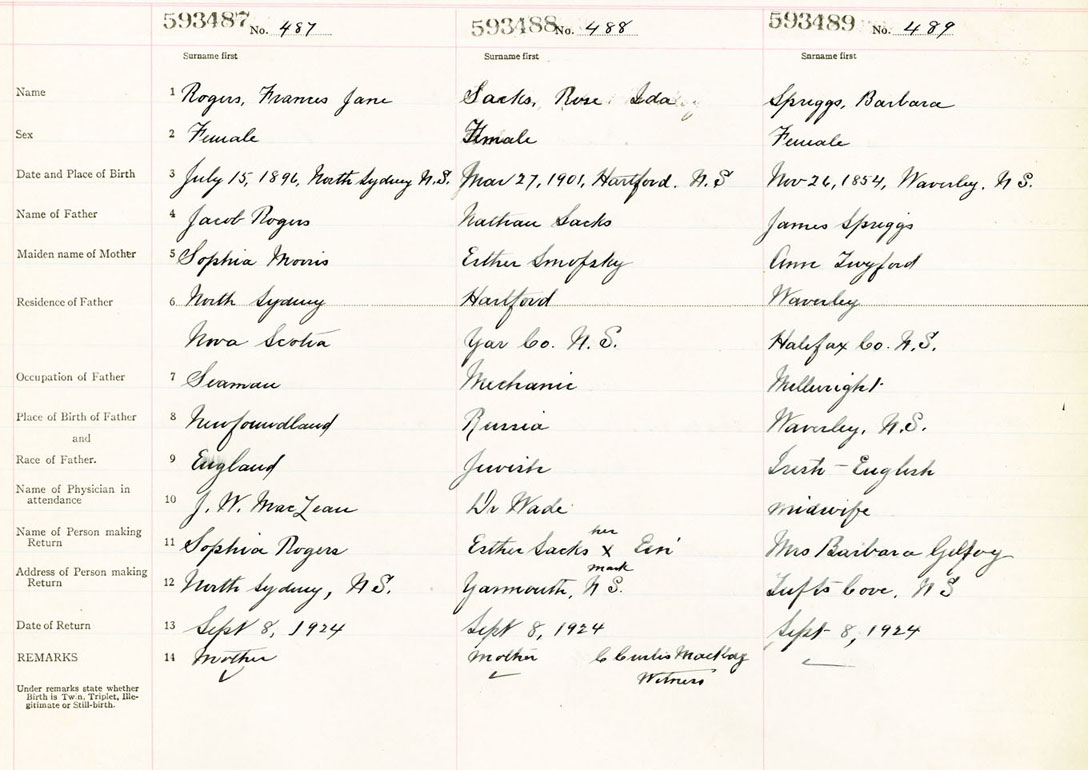 593487 No. 487 593488 No. 488 593489 No. 489
Surname first Surname first Surname first
Name 1 Rogers, Frances Jane Sacks, Rose Ida Spriggs, Barbara
Sex 2 Female Female Female
Date and Place of Birth 3 July 15, 1896, North Sydney N.S. Mar 27, 1901, Hartford. N.S Nov 26, 1854, Waverley. N S.
Name of Father 4 Jacob Rogers Nathan Sacks James Spriggs
Maiden name of Mother 5 Sophia Morris Esther Smofsky Ann Twyford
Residence of Father 6 North Sydney Hartford Waverley
Nova Scotia Yar Co. N.S. Halifax Co. N.S.
Occupation of Father 7 Seaman Mechanic Millwright
Place of Birth of Father 8 Newfoundland Russia Waverley, N.S.
and
Race of Father. 9 England Jewish Irish - English
Name of Physician in
attendance 10 J. W. MacLean Dr Wade midwife
her
Name of Person making
Return 11 Sophia Rogers Esther Sacks X Mrs Barbara
mark
Address of Person making
Return 12 North Sydney, N S. Yarmouth, N S. Tufts Cove, N S
Date of Return 13 Sept 8, 1924 Sept 8, 1924 Sept 8, 1924
REMARKS 14 Mother Mother C Curtis MacKay
Witness
Under remarks state whether
Birth is Twin, Triplet, Ille-
gitimate or Still-birth.